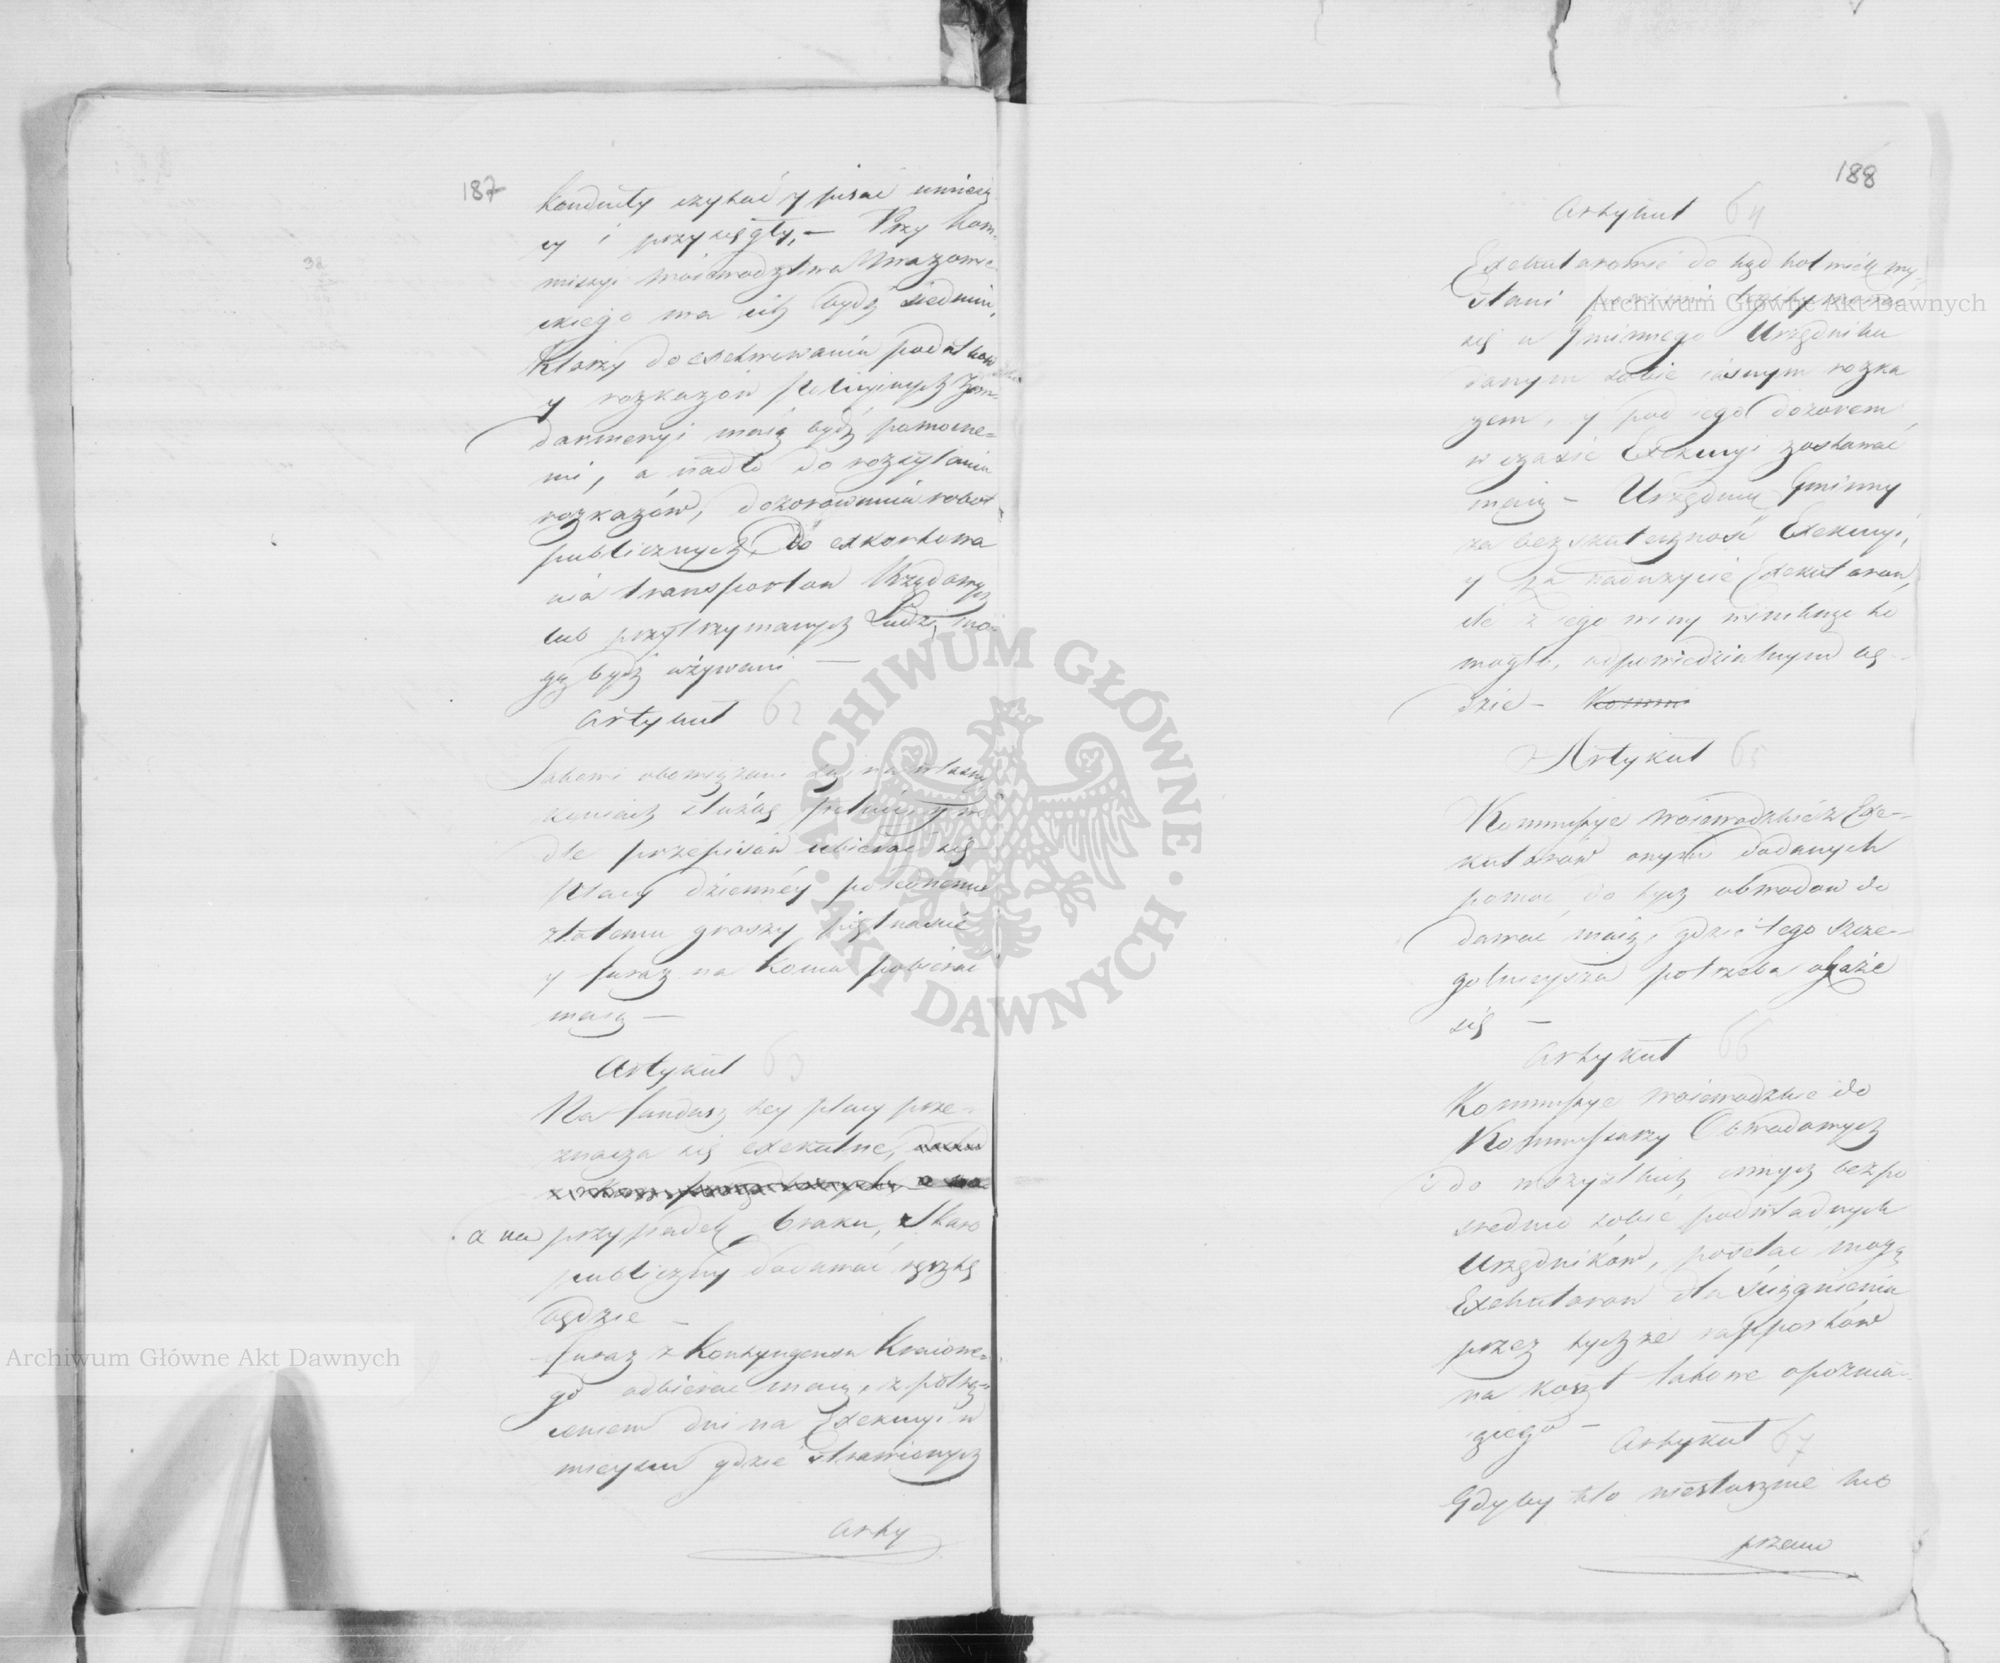 187
konduity czytać y pisać umieią
cy i przysięgły, — Przy Kom-
missyi Woiewodztwa Mazowie-
ckiego ma ich bydź siedmiu,
Którzy do exekwowania podatkow
y rozkazów Policyinych Żan-
darmeryi maią bydź pomocne-
mi, a nadto do rozsyłania
rozkazów, dozorowania robot
publicznych, do exkortowa
nia transportow Urzędowych
lub przytrzymanych Ludzi, mo-
gą bydź używani —
Artykuł 62
Takowi obowiązani są, na własnych
koniach służbę pełnić, y we
dle przepisów ubierać się
Płacy dzienney po iednemu
złotemu groszy piętnaście
y furaż na konia pobierać
maią —
Artykuł 63
Na fundusz tey płacy prze-
znacza się exekutne,
a na przypadek braku, Skarb
publiczny dodawać resztę
będzie —
furaż z Kontyngensu Kraiowe-
go odbierać maią, z potrą-
ceniem dni na Exekucyi w
mieyscu gdzie strawionych
Arty
188
Artykuł 64
Exekutorowie do kąd kolwiek wy-
słani powinni legitymować
się u Gminnego Urzędnika
danym sobie iasnym rozka
zem, y pod iego dozorem
w czasie Exekucyi zostawać
maią — Urzędnik Gminny
za bezskuteczność Exekucyi,
y za nadużycie Exekutorow,
ile z iego winy wyniknąć to
mogło, odpowiedzialnym bę-
dzie — Kommi
Artykuł 65
Kommissye Woiewodzkie z Exe-
kutorow onym dodanych
pomoc do tych obwodow do
dawać maią, gdzie tego szcze-
golnieysza potrzeba okaże
się —
Artykuł 66
Kommissye Woiewodzkie do
Kommissarzy Obwodowych
do wszystkich innych bezpo
srednio sobie podwładnych
Urzędników, posełać mogą
Exekutorow dla ściągnienia
przez tychże rapportów
na koszt takowe opoźnia-
iącego —
Artykuł 67
Gdyby kto niesłusznie lub
przeciw
Archiwum Główne Akt Dawnych
Archiwum Główne Akt Dawnych
ARCHIWUM GŁÓWNE · AKT DAWNYCH ·